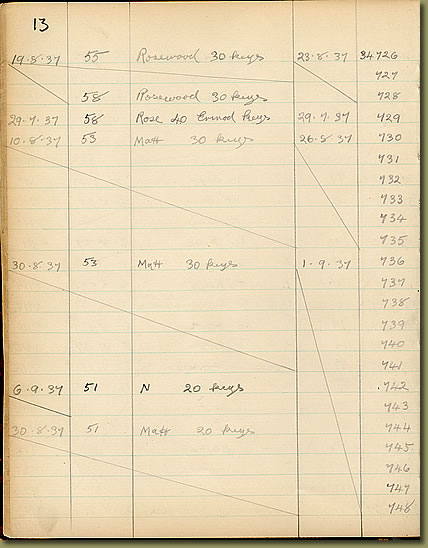 13
19·8·37 55 Rosewood 30 keys 23·8·37 34726
727
58 Rosewood 30 keys 728
29·7·37 58 Rose 40 keys 29·7·37 729
10·8·37 53 Matt 30 keys 26·8·37 730
731
732
733
734
735
30·8·37 53 Matt 30 keys 1·9·37 736
737
738
739
740
741
6·9·37 51 N 20 keys 742
743
30·8·37 51 Matt 20 keys 744
745
746
747
748